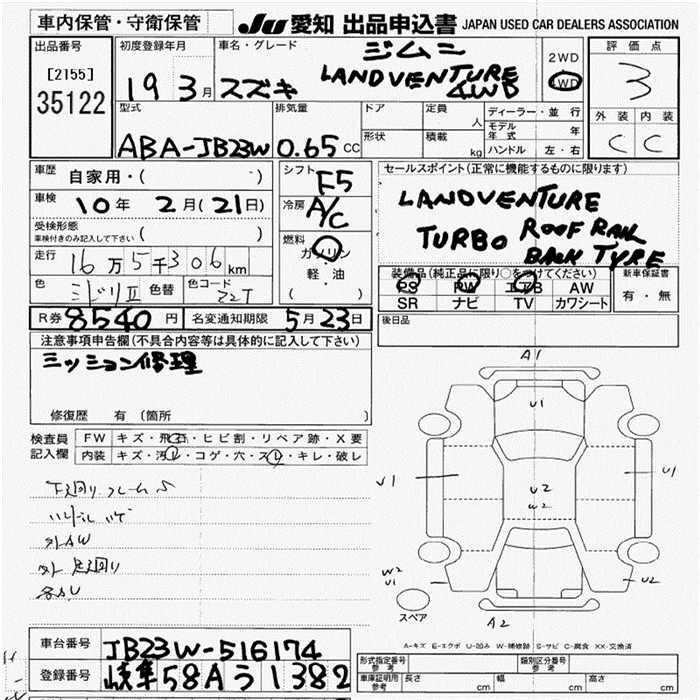 車内保管・守衛保管
JU 愛知 出品申込書 JAPAN USED CAR DEALERS ASSOCIATION
出品番号
[2155]
35122
初度登録年月
19 3月
車名・グレード
スズキ
ジムニー
LANDVENTURE
4WD
2WD
4WD
評価点
3
外装 内装
C C
型式
ABA-JB23W
排気量
0.65 CC
ドア
形状
定員 人
積載 kg
ディーラー・並行
モデル年式 年
ハンドル 左・右
車歴
自家用・( )
車検
10年 2月(21日)
受検形態
車検付きのみ記入して下さい ( )
走行
16万5千306km
色
ミドリII
色替
色コード
ZZT
シフト
F5
冷房
A/C
燃料
ガソリン
軽・油
( )
セールスポイント(正常に機能するものに限ります)
LANDVENTURE
TURBO ROOF RAIL
BACK TYRE
装備品(純正品に限り○をつけてください)
PS PW エアB AW
SR ナビ TV カワシート
新車保証書
有・無
R券 8540円 名変通知期限 5月23日
後日品
注意事項申告欄(不具合内容等は具体的に記入して下さい)
ミッション修理
修復歴 有 (箇所 )
検査員
記入欄
FW キズ・飛石・ヒビ割・リペア跡・X要
内装 キズ・汚レ・コゲ・穴・スレ・キレ・破レ
下廻り フレームS
ハンドルハゲ
外AW
外 足廻り
A1
U1
U1
U1
U2
W2
W2
U1
U2
スペア
A2
A-キズ E-エクボ U-凹み W-補修跡 S-サビ C-腐食 XX-交換済
車台番号 JB23W-516174
登録番号 岐阜58Aう1382
形式指定番号
参考
類別区分番号
参考
車庫証明用
参考
長さ cm 幅 cm 高さ cm